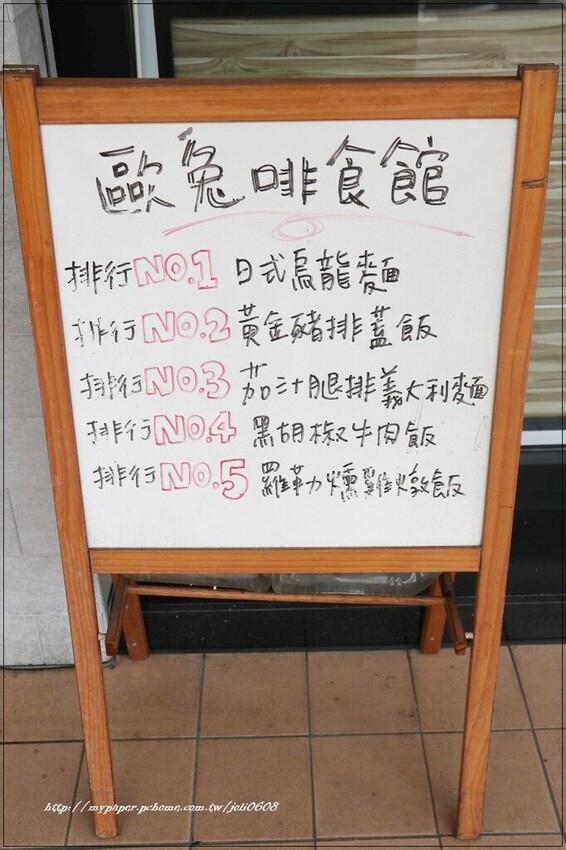 歐兔啡食館
排行NO.1 日式烏龍麵
排行NO.2 黃金豬排蓋飯
排行NO.3 茄汁腿排義大利麵
排行NO.4 黑胡椒牛肉飯
排行NO.5 羅勒燻雞燉飯
http://mypaper.pchome.com.tw/joli0608